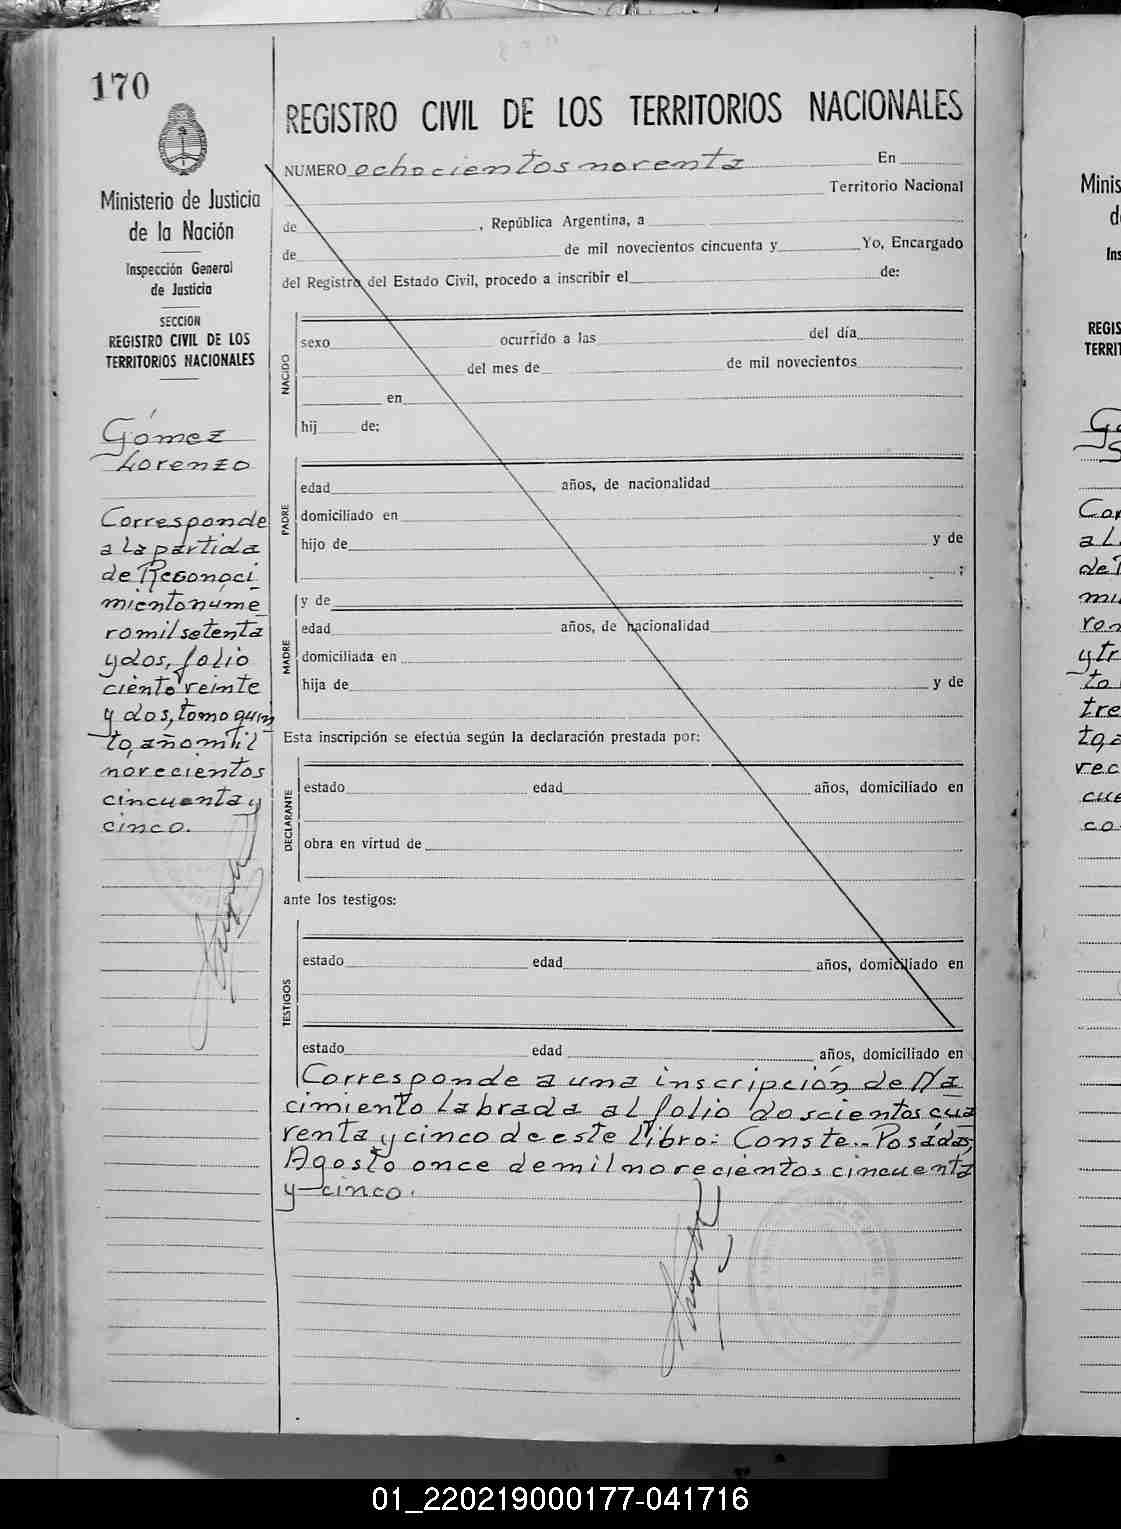 170
Ministerio de Justicia
de la Nación
Inspección General
de Justicia
SECCION
REGISTRO CIVIL DE LOS
TERRITORIOS NACIONALES
Gómez
Lorenzo
Corresponde
a la partida
de Reconoci
miento nume
ro mil setenta
y dos, folio
ciento veinte
y dos, tomo quin
to, año mil
novecientos
cincuenta y
cinco.
REGISTRO CIVIL DE LOS TERRITORIOS NACIONALES
NUMERO ochocientos noventa En
Territorio Nacional
de , República Argentina, a
de de mil novecientos cincuenta y Yo, Encargado
del Registro del Estado Civil, procedo a inscribir el de:
NACIDO
sexo ocurrido a las del día
del mes de de mil novecientos
en
hij de:
PADRE
edad años, de nacionalidad
domiciliado en
hijo de y de
;
y de
MADRE
edad años, de nacionalidad
domiciliada en
hija de y de
Esta inscripción se efectúa según la declaración prestada por:
DECLARANTE
estado edad años, domiciliado en
obra en virtud de
ante los testigos:
TESTIGOS
estado edad años, domiciliado en
estado edad años, domiciliado en
Corresponde a una inscripción de Na
cimiento labrada al folio doscientos cua
renta y cinco de este libro: Conste.. Posadas,
Agosto once de mil novecientos cincuenta
y cinco.
Minis
d
Ins
REGIS
TERRIT
Gó
Cor
a l
de R
mi
ron
y tr
to
tre
to, a
vec
cue
co
01_220219000177-041716